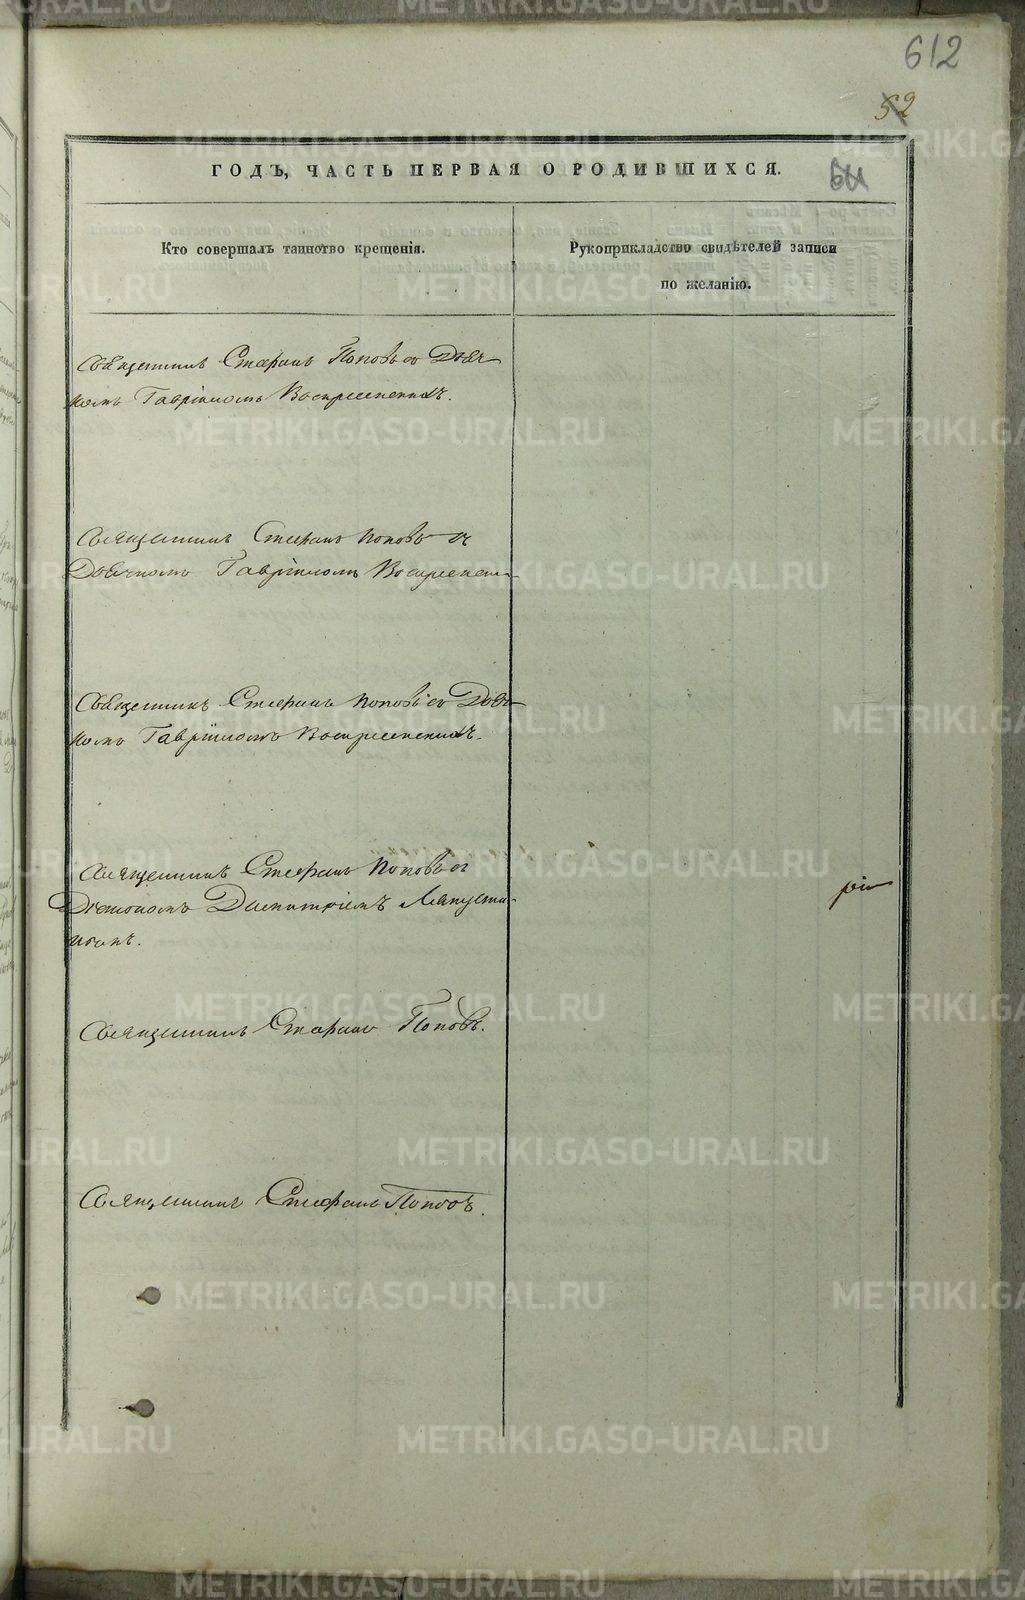 612
52
ГОДЪ, ЧАСТЬ ПЕРВАЯ О РОДИВШИХСЯ.
Кто совершалъ таинство крещенія.
Рукоприкладство свидѣтелей записи
по желанію.
Священникъ Стефанъ Поповъ съ Дьяч
комъ Гавріиломъ Воскресенскимъ.
Священникъ Стефанъ Поповъ съ
Дьячкомъ Гавріиломъ Воскресенски
Священникъ Стефанъ Поповъ съ Дьяч
комъ Гавріиломъ Воскресенскимъ.
Священникъ Стефанъ Поповъ съ
Діакономъ Димитріемъ
Священникъ Стефанъ Поповъ.
Священникъ Стефанъ Поповъ.
METRIKI.GASO-URAL.RU